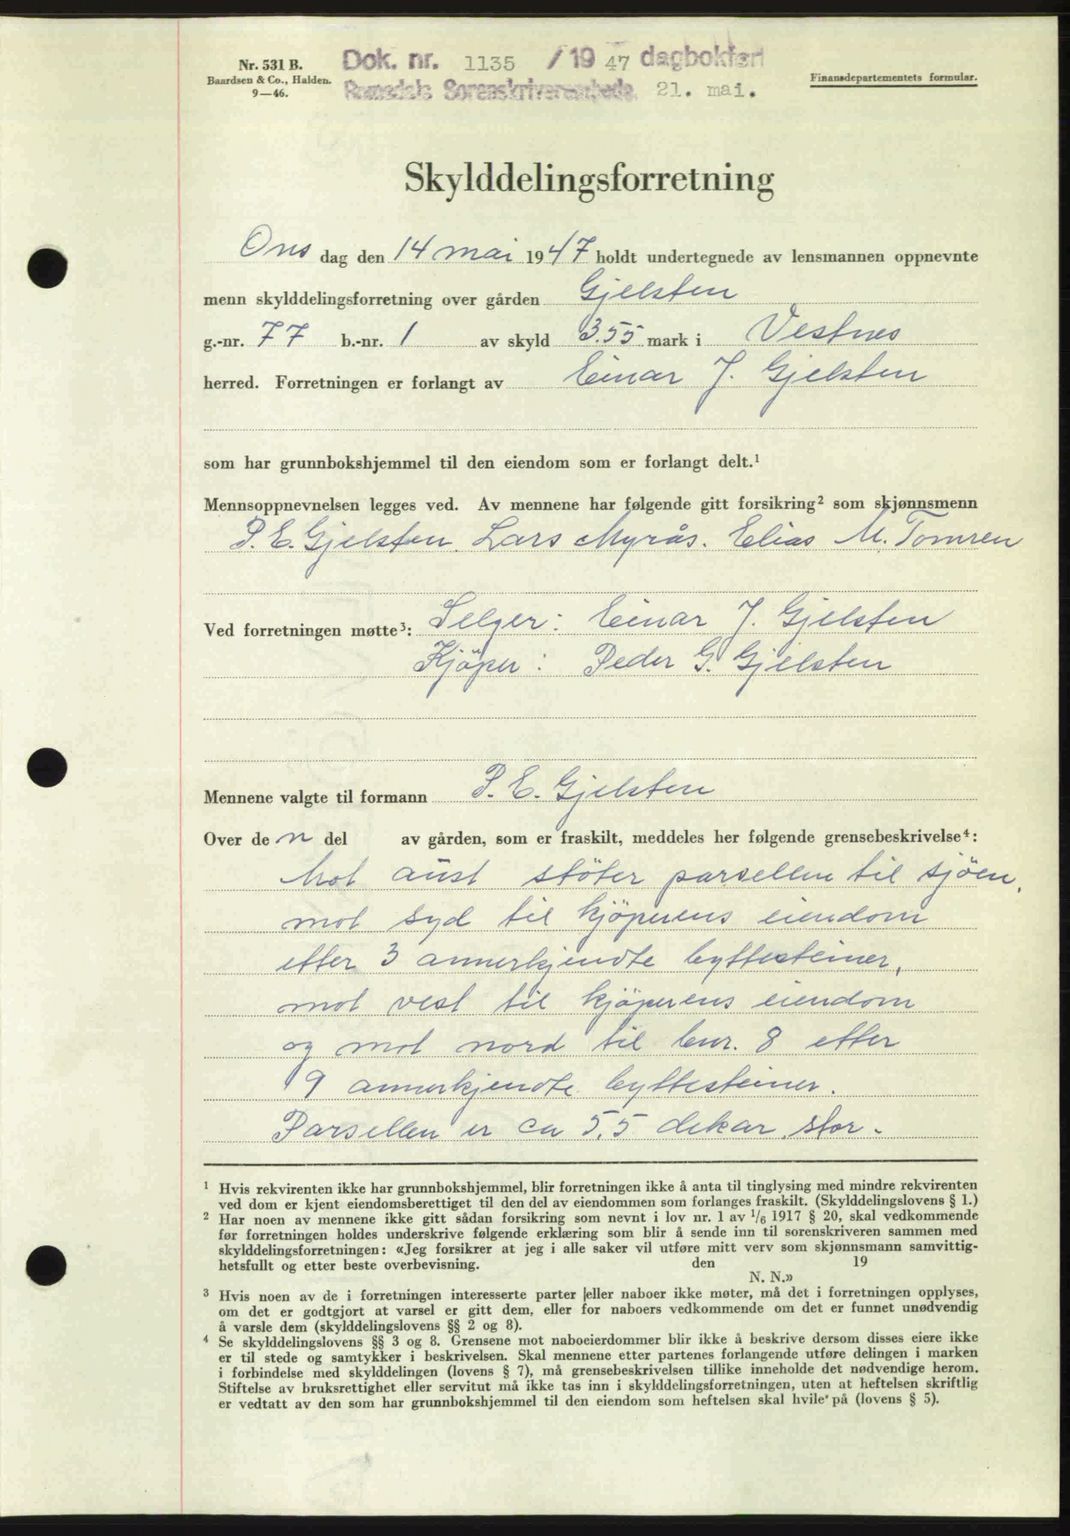 Nr. 531 B.
Baardsen & Co., Halden.
9—46.
Dok. nr. 1135 / 19 47 dagbokført
Romsdals Sorenskriverembede. 21. mai.
Finansdepartementets formular.
Skylddelingsforretning
Ons dag den 14 mai 1947 holdt undertegnede av lensmannen oppnevnte
menn skylddelingsforretning over gården Gjelsten
g.-nr. 77 b.-nr. 1 av skyld 3.55 mark i Vestnes
herred. Forretningen er forlangt av Einar J. Gjelsten
som har grunnbokshjemmel til den eiendom som er forlangt delt.¹
Mennsoppnevnelsen legges ved. Av mennene har følgende gitt forsikring² som skjønnsmenn
P. E. Gjelsten. Lars Myrås. Elias M. Tomren
Ved forretningen møtte³: Selger: Einar J. Gjelsten
Kjöper: Peder G. Gjelsten
Mennene valgte til formann P. E. Gjelsten
Over de n del av gården, som er fraskilt, meddeles her følgende grensebeskrivelse⁴:
Mot aust støter parsellen til sjöen,
mot syd til kjöperens eiendom
etter 3 annerkjendte byttesteiner,
mot vest til kjöperens eiendom
og mot nord til bnr. 8 etter
9 annerkjendte byttesteiner.
Parsellen er ca 5,5 dekar stor.
¹ Hvis rekvirenten ikke har grunnbokshjemmel, blir forretningen ikke å anta til tinglysing med mindre rekvirenten
ved dom er kjent eiendomsberettiget til den del av eiendommen som forlanges fraskilt. (Skylddelingslovens § 1.)
² Har noen av mennene ikke gitt sådan forsikring som nevnt i lov nr. 1 av 1/6 1917 § 20, skal vedkommende
før forretningen holdes underskrive følgende erklæring som blir å sende inn til sorenskriveren sammen med
skylddelingsforretningen: «Jeg forsikrer at jeg i alle saker vil utføre mitt verv som skjønnsmann samvittig-
hetsfullt og etter beste overbevisning. den 19
N. N.»
³ Hvis noen av de i forretningen interesserte parter eller naboer ikke møter, må det i forretningen opplyses,
om det er godtgjort at varsel er gitt dem, eller for naboers vedkommende om det er funnet unødvendig
å varsle dem (skylddelingslovens §§ 2 og 8).
⁴ Se skylddelingslovens §§ 3 og 8. Grensene mot naboeierdommer blir ikke å beskrive dersom disses eiere ikke
er til stede og samtykker i beskrivelsen. Skal mennene etter partenes forlangende utføre delingen i marken
i forbindelse med skylddelingen (lovens § 7), må grensebeskrivelsen tillike inneholde det nødvendige herom.
Stiftelse av bruksrettighet eller servitut må ikke tas inn i skylddelingsforretningen, uten at heftelsen skriftlig
er vedtatt av den som har grunnbokshjemmel til den eiendom som heftelsen skal hvile på (lovens § 5).